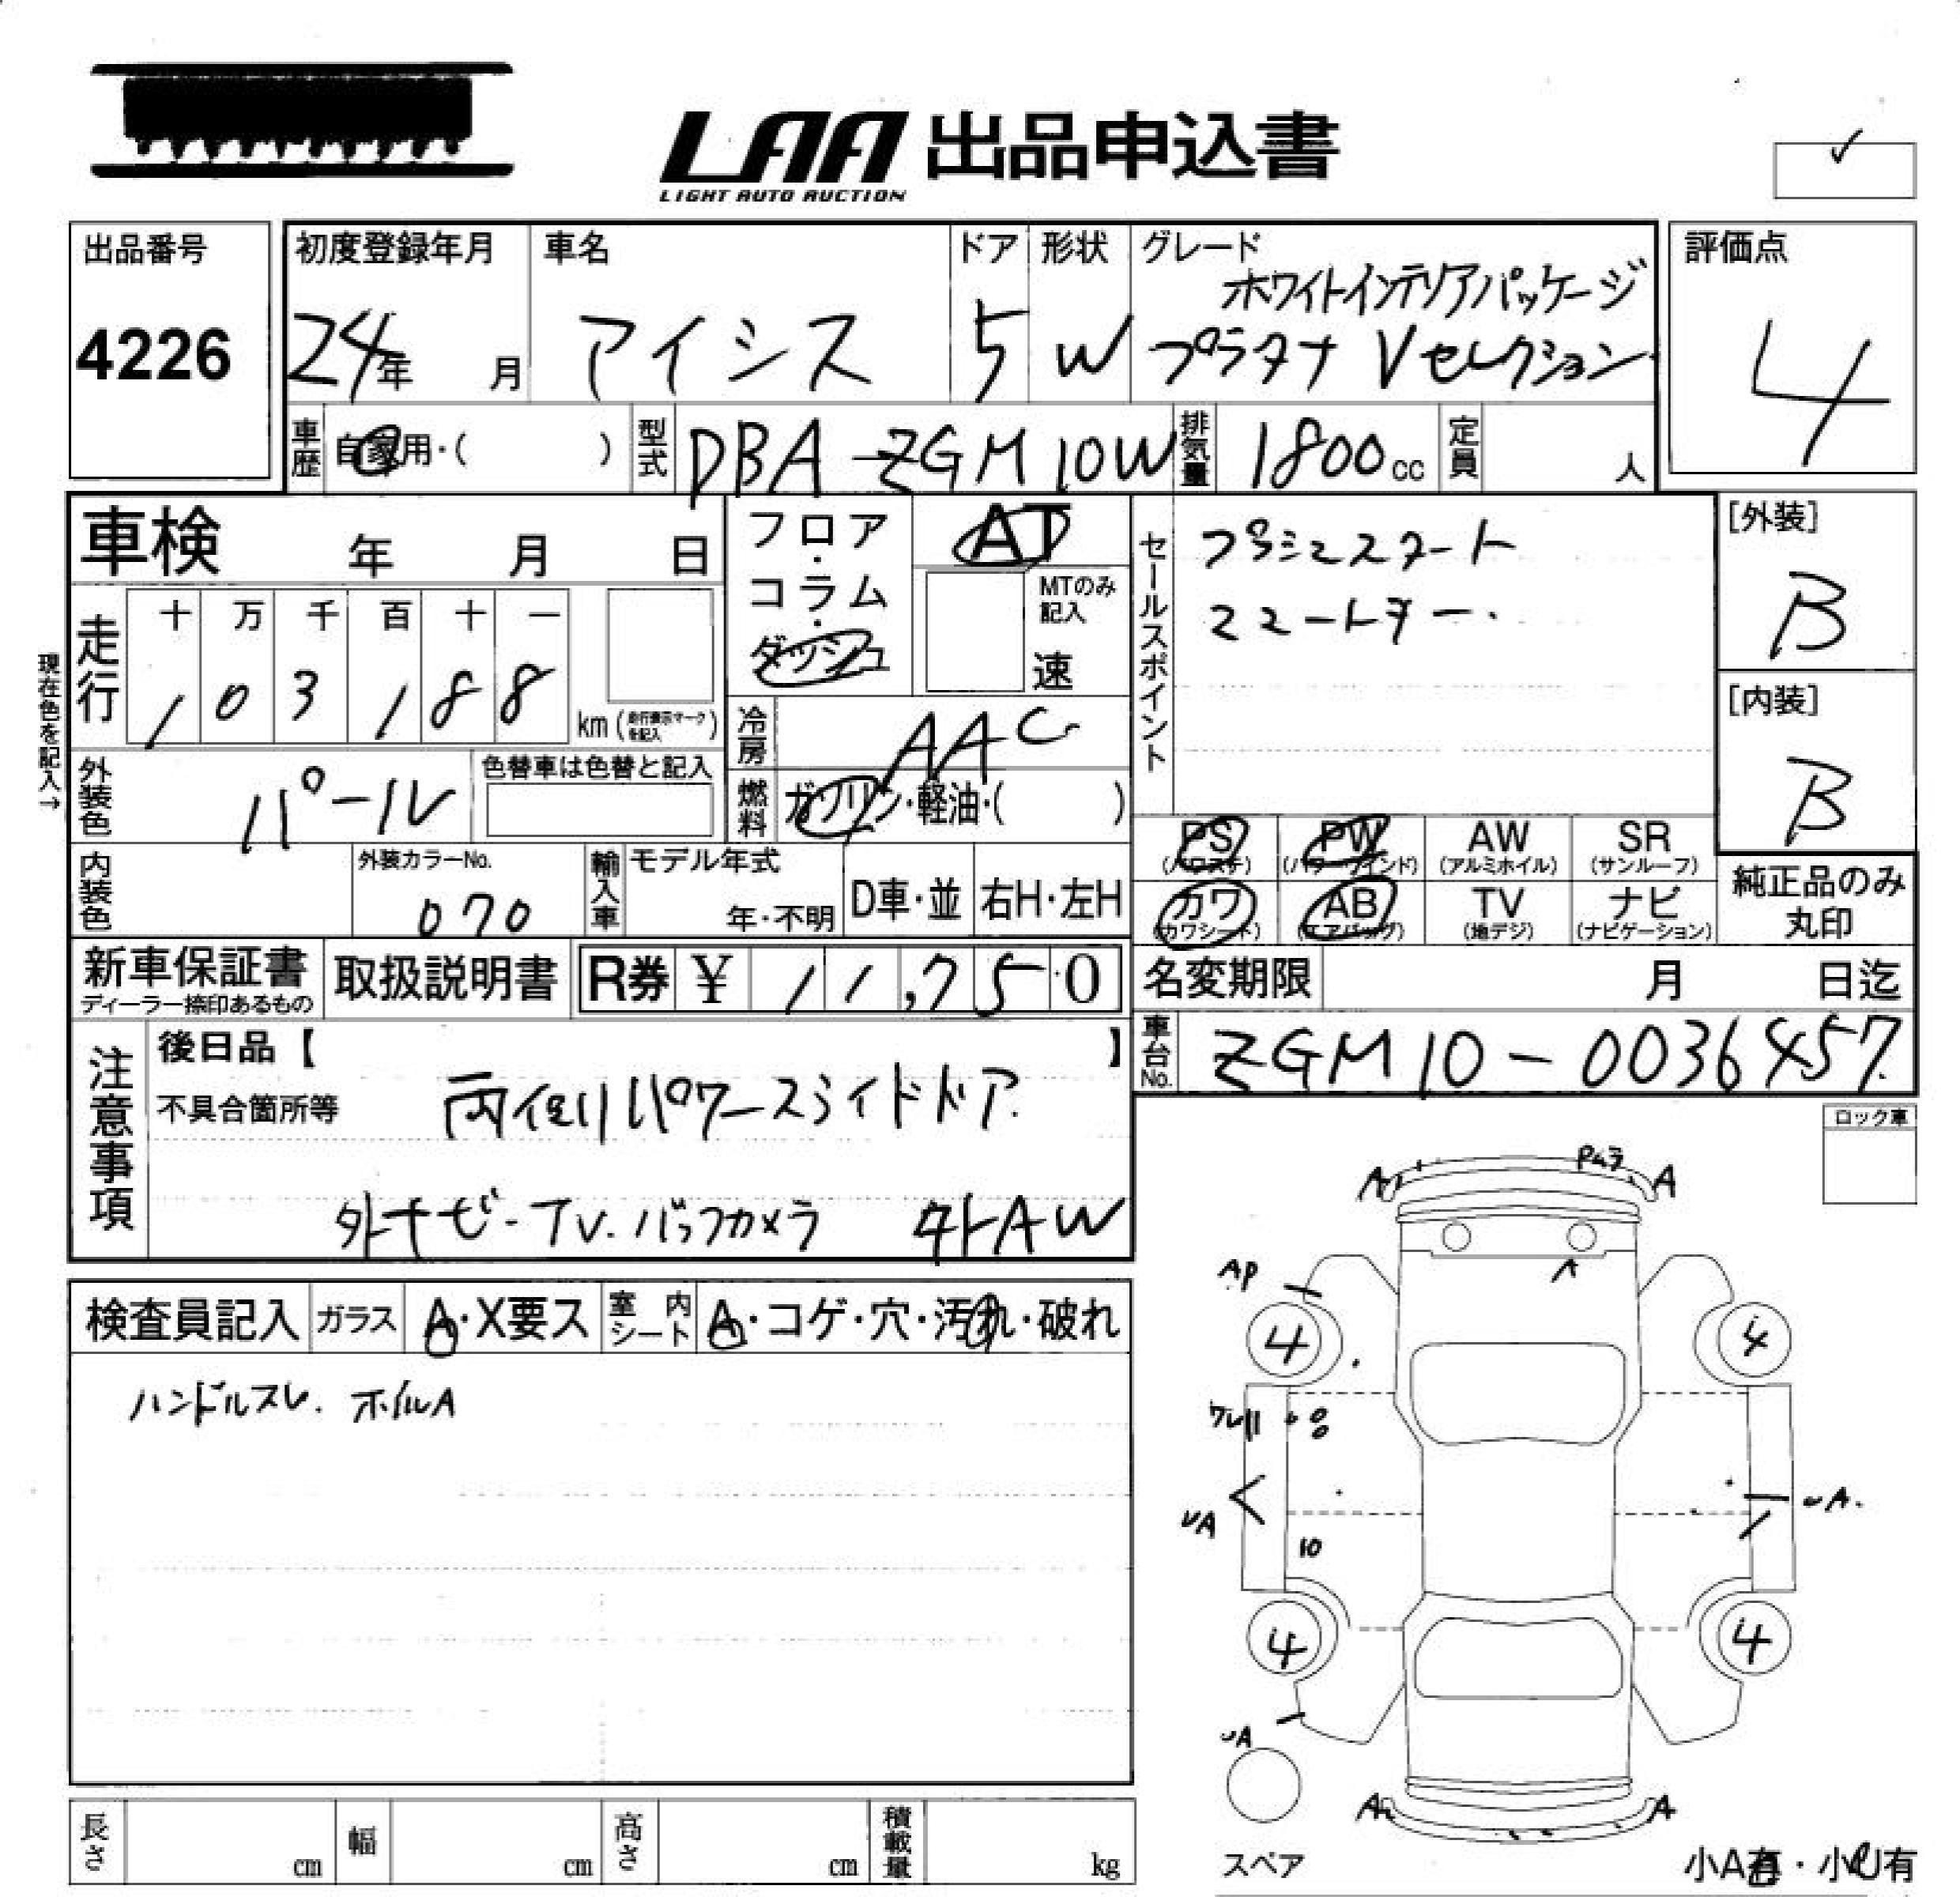 LAA 出品申込書
LIGHT AUTO AUCTION
出品番号
4226
初度登録年月
24年 月
車名
アイシス
ドア
5
形状
W
グレード
ホワイトインテリアパッケージ
プラタナ Vセレクション
評価点
4
車歴 自家用・( )
型式 DBA-ZGM10W
排気量 1800cc
定員 人
車検 年 月 日
フロア・コラム・ダッシュ
AT
MTのみ記入
速
セールスポイント
プッシュスタート
スマートキー.
[外装]
B
[内装]
B
現在色を記入→
走行
十 万 千 百 十 一
1 0 3 1 8 8
km (走行表示マークを記入)
冷房 AAC
外装色 パール
色替車は色替と記入
燃料 ガソリン・軽油・( )
PS (パワステ) PW (パワーウインド) AW (アルミホイル) SR (サンルーフ)
カワ (カワシート) AB (エアバッグ) TV (地デジ) ナビ (ナビゲーション)
純正品のみ丸印
内装色
外装カラーNo.
070
輸入車 モデル年式
年・不明
D車・並 右H・左H
新車保証書
ディーラー捺印あるもの
取扱説明書
R券 ¥ 11,750
名変期限 月 日迄
車台No. ZGM10-0036457
注意事項
後日品【 】
不具合箇所等
両側パワースライドドア.
外ナビ-TV.バックカメラ 外AW
ロック車
検査員記入 ガラス A・X要ス 室内シート A・コゲ・穴・汚れ・破れ
ハンドルスレ. ホイルA
A A
AP A
4 4
ワレ
UA UA.
10
4 4
UA
A A
スペア
小A有・小U有
長さ cm 幅 cm 高さ cm 積載量 kg